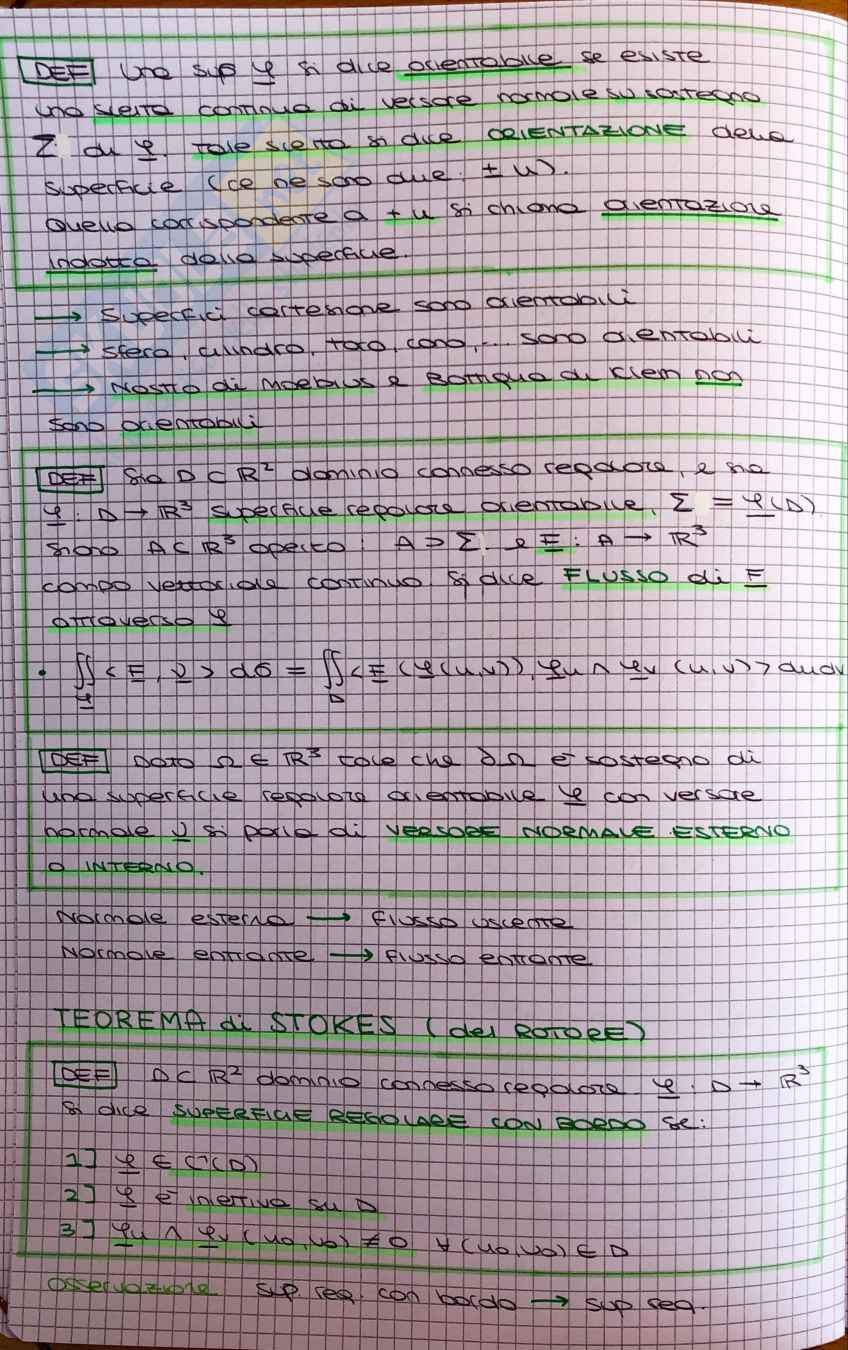 DEF Una sup φ si dice orientabile se esiste
una scelta continua di versore normale su sostegno
Σ di φ. Tale scelta si dice ORIENTAZIONE della
superficie (ce ne sono due: ± u).
Quella corrispondente a + u si chiama orientazione
indotta dalla superficie.
→ Superfici cartesiane sono orientabili
→ sfera, cilindro, toro, cono, ... sono orientabili
→ Nastro di Moebius e Bottiglia di Klein non
sono orientabili
DEF Sia D ⊂ ℝ² dominio connesso regolare, e sia
φ : D → ℝ³ superficie regolare orientabile, Σ = φ(D).
Siano A ⊂ ℝ³ aperto : A ⊃ Σ e F : A → ℝ³
campo vettoriale continuo. Si dice FLUSSO di F
attraverso φ
• ∬_φ < F, ν > dσ = ∬_D < F (φ(u,v)), φu ∧ φv (u,v) > dudv
DEF Dato Ω ∈ ℝ³ tale che ∂Ω è sostegno di
una superficie regolare orientabile φ con versore
normale ν si parla di VERSORE NORMALE ESTERNO
O INTERNO.
Normale esterna → flusso uscente
Normale entrante → flusso entrante
TEOREMA di STOKES (del ROTORE)
DEF D ⊂ ℝ² dominio connesso regolare. φ : D → ℝ³
Si dice SUPERFICIE REGOLARE CON BORDO se:
1] φ ∈ C¹(D)
2] φ è iniettiva su D
3] φu ∧ φv (u0, v0) ≠ 0 ∀ (u0, v0) ∈ D
Osservazione sup. reg. con bordo → sup reg.